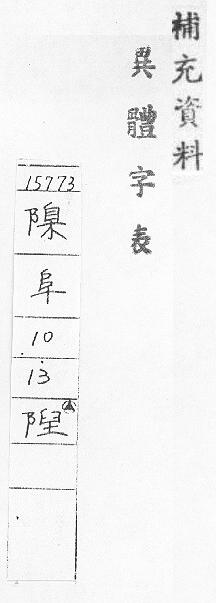 補充資料
異體字表
15773
阜
10
13